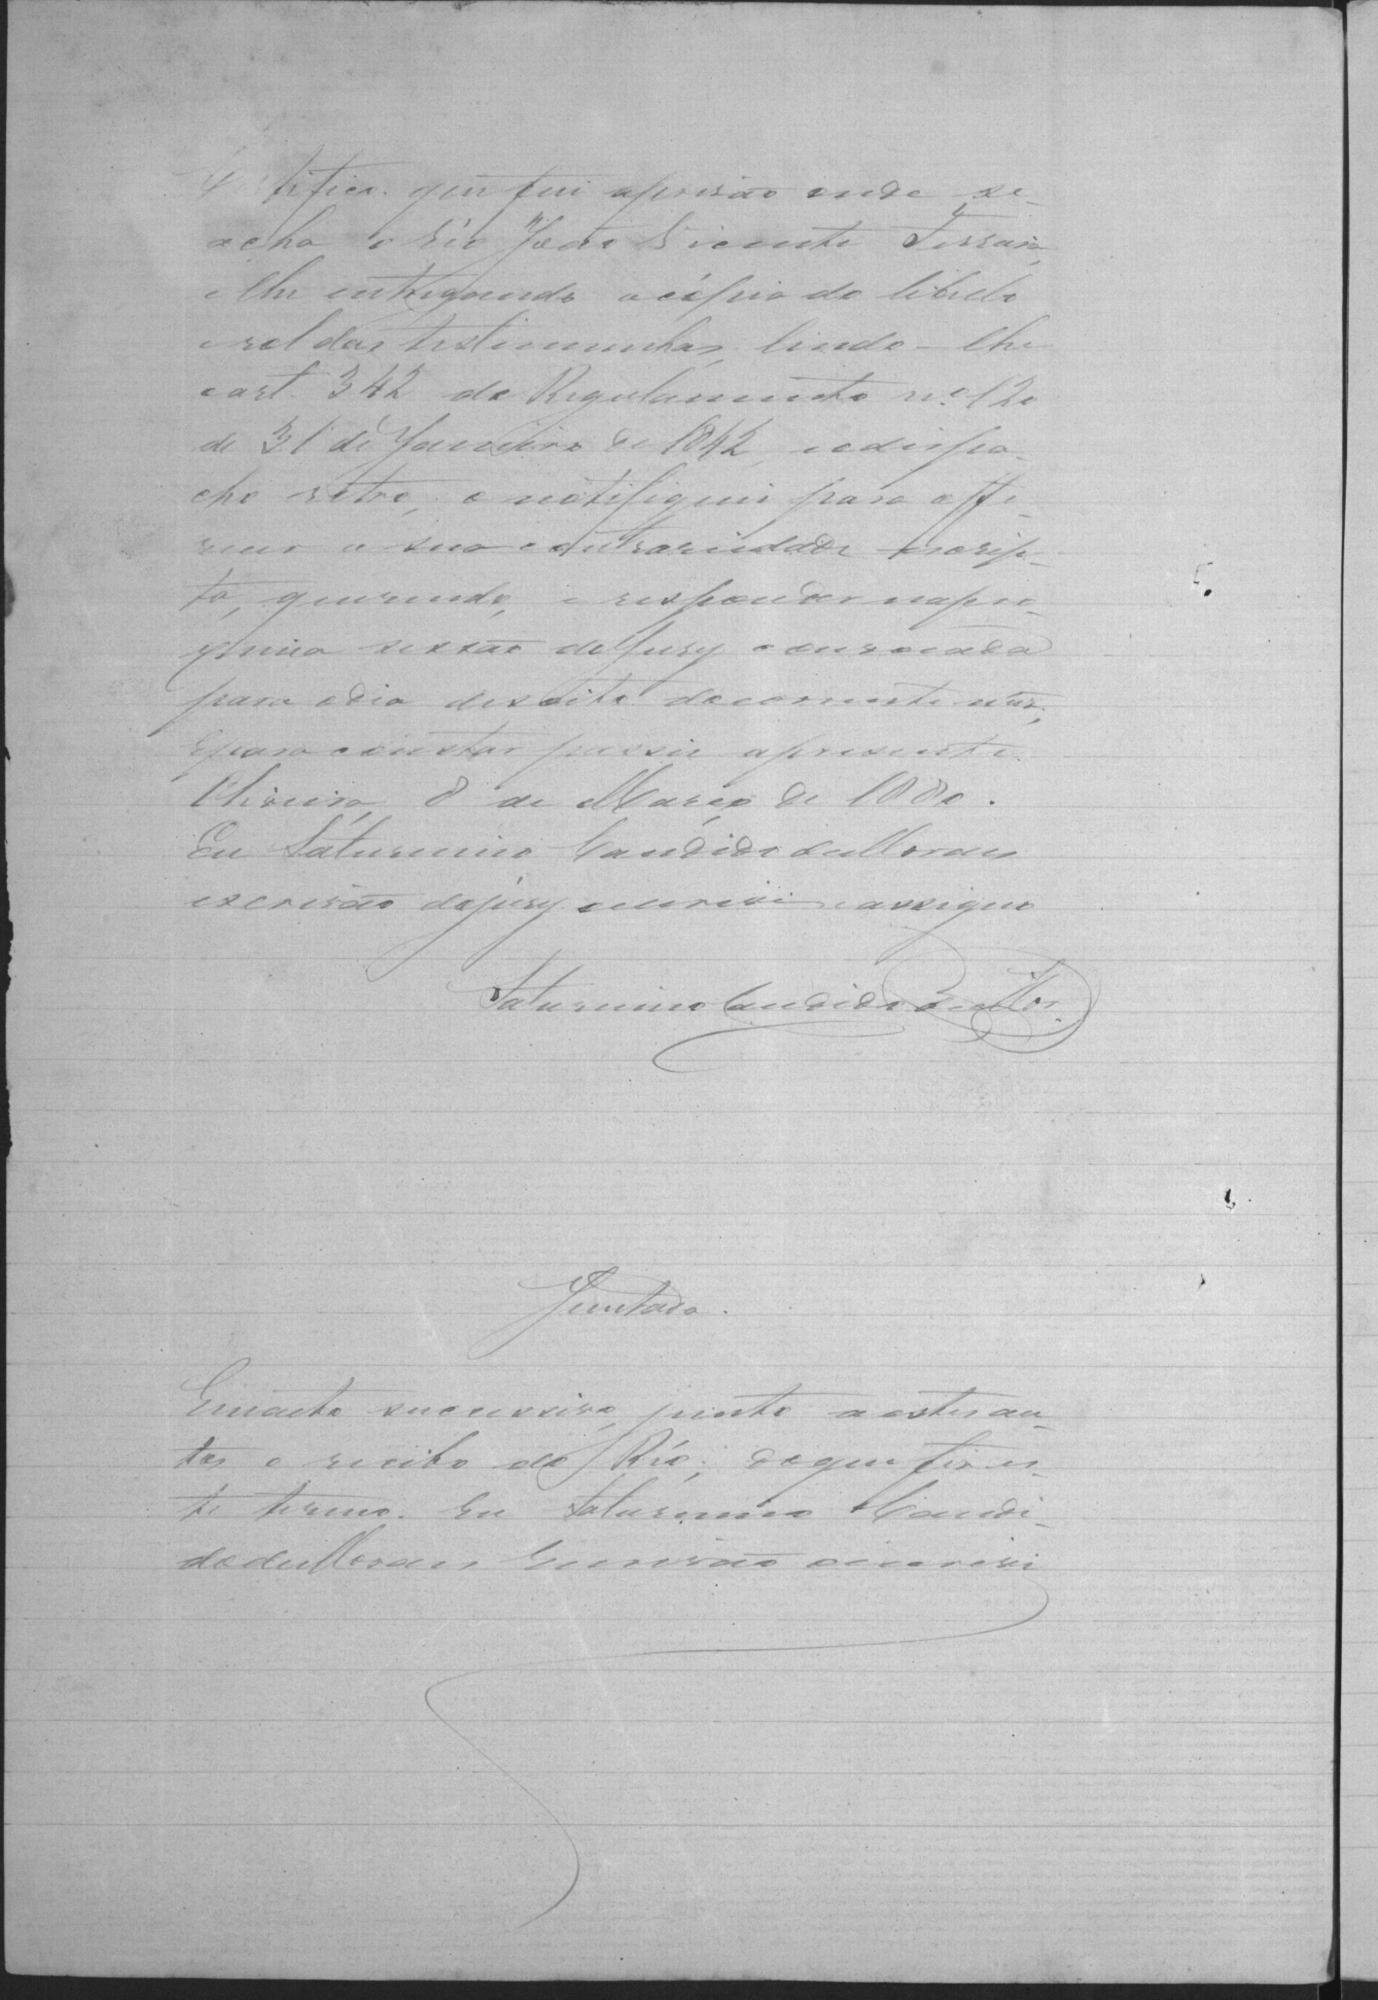 Certifico que fui aprisão onde se
acha o Réo João Vicente Ferreira,
e lhe entregando a cópia do libello
e rol das testimunhas, lendo-lhe
o art. 342 do Regulamento nº 120
de 31 de Janeiro de 1842, e o despa-
cho retro, o notifiquei para offe-
recer a sua contrariedade escrip-
ta, querendo, e responder na pro-
xima sessão do Jury convocada
para o dia desoito do corrente mes;
e para constar passei a presente.
Oliveira, 8 de Março de 1880.
Eu Saturnino Candido de Moraes
escrivão do jury escrevi e assigno
Saturnino Candido de Mor.
Juntada.
Em acto successivo, junto a estes au-
tos o recibo do Réo; do que fis es-
te termo. Eu Saturnino Candi-
do de Moraes Escrivão o escrevi